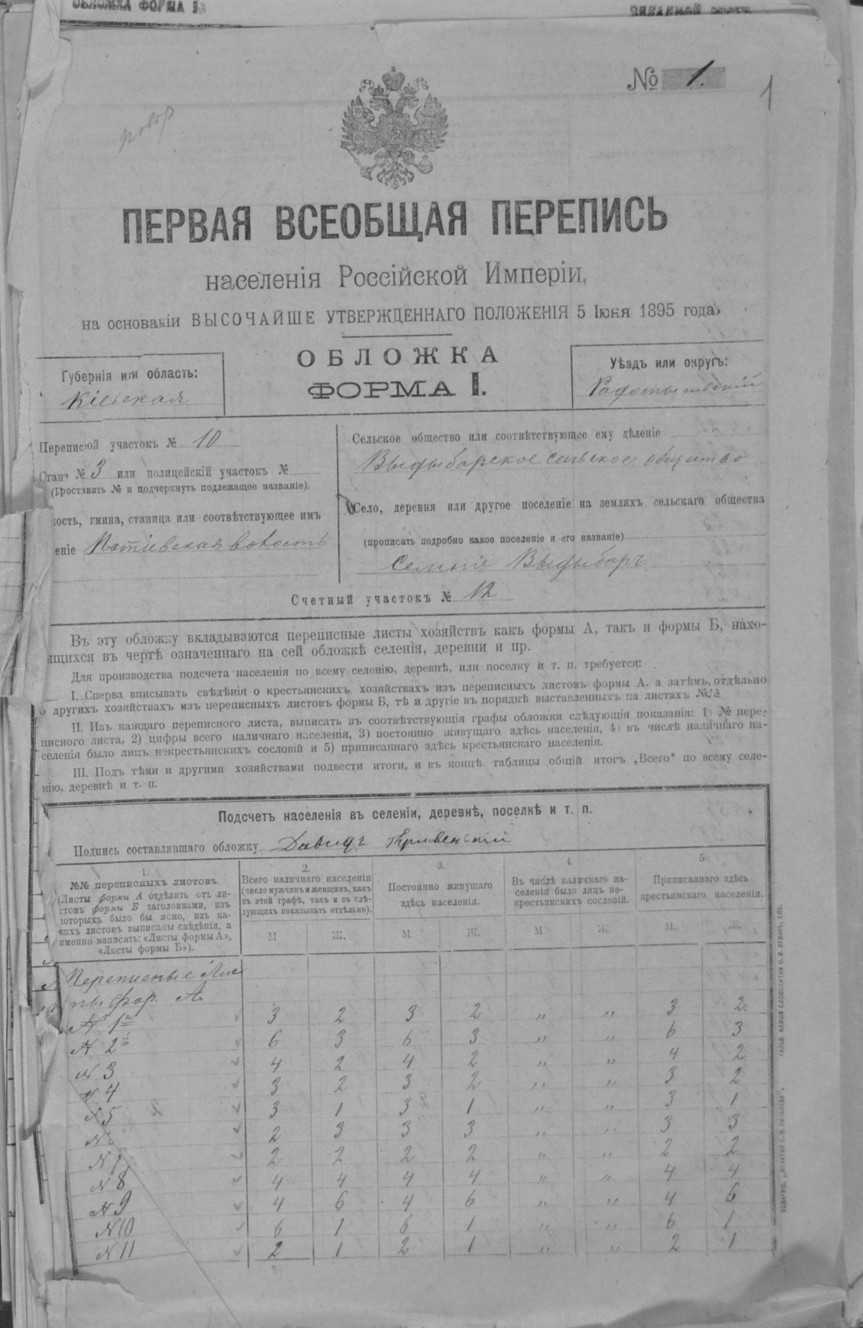 ОБЛОЖКА ФОРМА I
№ 1.
1
ПЕРВАЯ ВСЕОБЩАЯ ПЕРЕПИСЬ
населенія Россійской Имперіи,
на основаніи ВЫСОЧАЙШЕ УТВЕРЖДЕННАГО ПОЛОЖЕНІЯ 5 Іюня 1895 года.
ОБЛОЖКА
ФОРМА I.
Губернія или область:
Кіевская
Уѣздъ или округъ:
Радомысльскій
Переписной участокъ № 10
Станъ № 3 или полицейскій участокъ №
(Проставить № и подчеркнуть подлежащее названіе).
ость, гмина, станица или соотвѣтствующее имъ
еніе Потіевская волость
Сельское общество или соотвѣтствующее ему дѣленіе
Выдыборское сельское общество
Село, деревня или другое поселеніе на земляхъ сельскаго общества
(прописать подробно какое поселеніе и его названіе)
Выдыборъ
Счетный участокъ № 12
Въ эту обложку вкладываются переписные листы хозяйствъ какъ формы А, такъ и формы Б, нахо-
ящихся въ чертѣ означеннаго на сей обложкѣ селенія, деревни и пр.
Для производства подсчета населенія по всему селенію, деревнѣ, или поселку и т. п. требуется:
I. Сперва вписывать свѣдѣнія о крестьянскихъ хозяйствахъ изъ переписныхъ листовъ формы А. а затѣмъ, отдѣльно
о другихъ хозяйствахъ изъ переписныхъ листовъ формы Б, тѣ и другіе въ порядкѣ выставленныхъ на листахъ №№
II. Изъ каждаго переписного листа, выписать въ соотвѣтствующія графы обложки слѣдующія показанія: 1) № пере-
писного листа, 2) цифры всего наличнаго населенія, 3) постоянно живущаго здѣсь населенія, 4) въ числѣ наличнаго на-
селенія было лицъ некрестьянскихъ сословій и 5) приписаннаго здѣсь крестьянскаго населенія.
III. Подъ тѣми и другими хозяйствами подвести итоги, и въ концѣ таблицы общій итогъ „Всего“ по всему селе-
нію, деревнѣ и т. п.
Подсчетъ населенія въ селеніи, деревнѣ, поселкѣ и т. п.
Подпись составлявшаго обложку Давидъ
1.
№№ переписныхъ листовъ
(Листы формы А отдѣлить отъ ли-
стовъ формы Б заголовками, изъ
которыхъ было бы ясно, изъ ка-
кихъ листовъ выписаны свѣдѣнія, а
именно написать: «Листы формы А»,
«Листы формы Б»).
2.
Всего наличнаго населенія
(число мужчинъ и женщинъ, какъ
въ этой графѣ, такъ и въ слѣ-
дующихъ показывать отдѣльно).
М Ж.
3.
Постоянно живущаго
здѣсь населенія.
М. Ж.
4
Въ числѣ наличнаго на-
селенія было лицъ не-
крестьянскихъ сословій.
М. Ж.
5
Приписаннаго здѣсь
крестьянскаго населенія.
М. Ж.
Переписные Лис
ты фор. А
№ 1й 3 2 3 2 „ „ 3 2
№ 2й 6 3 6 3 „ „ 6 3
№ 3 4 2 4 2 „ „ 4 2
№ 4 3 2 3 2 „ „ 3 2
№ 5 3 1 3 1 „ „ 3 1
№ 2 3 3 3 „ „ 3 3
№ 2 2 2 2 „ „ 2 2
№ 8 4 4 4 4 „ „ 4 4
№ 9 4 6 4 6 „ „ 4 6
№ 10 6 1 6 1 „ „ 6 1
№ 11 2 1 2 1 „ „ 2 1